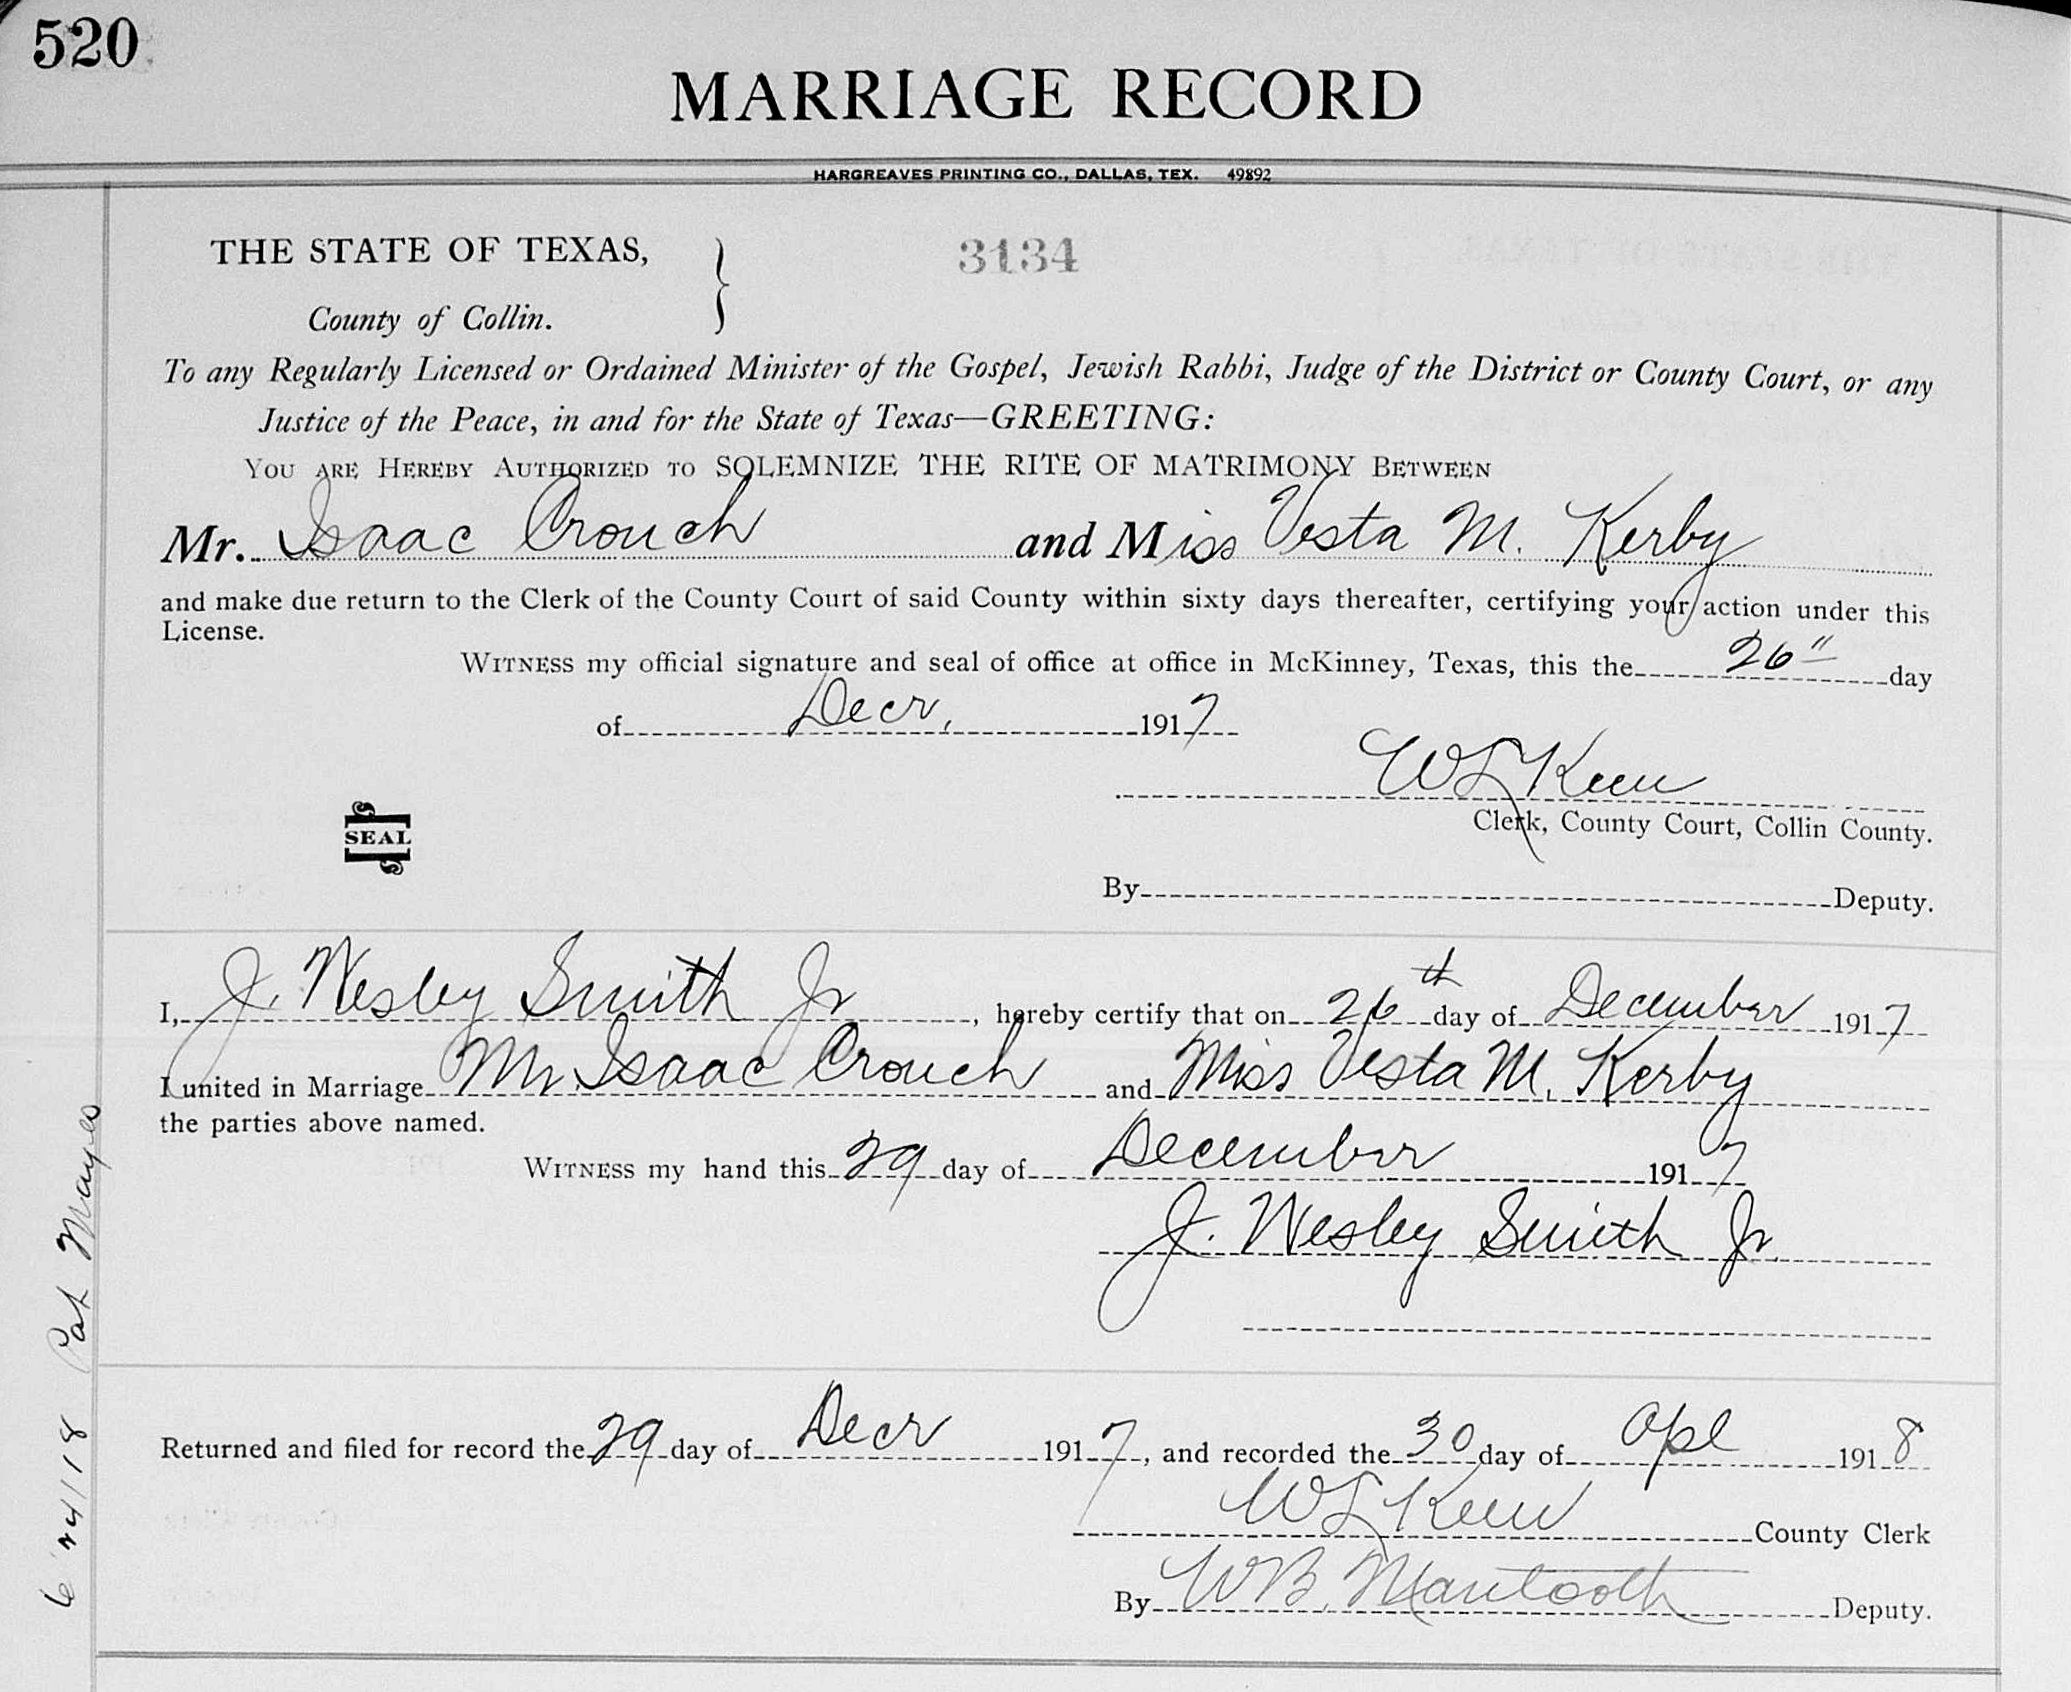 520
MARRIAGE RECORD
HARGREAVES PRINTING CO., DALLAS, TEX. 49892
THE STATE OF TEXAS,
3134
County of Collin.
To any Regularly Licensed or Ordained Minister of the Gospel, Jewish Rabbi, Judge of the District or County Court, or any
Justice of the Peace, in and for the State of Texas—GREETING:
YOU ARE HEREBY AUTHORIZED TO SOLEMNIZE THE RITE OF MATRIMONY BETWEEN
Mr. Isaac Crouch and Miss Vesta M. Kerby
and make due return to the Clerk of the County Court of said County within sixty days thereafter, certifying your action under this
License.
WITNESS my official signature and seal of office at office in McKinney, Texas, this the 26" day
of Decr, 1917
W L Keen
Clerk, County Court, Collin County.
SEAL
By Deputy.
I, J. Wesley Smith Jr, hereby certify that on 26th day of December 1917
I united in Marriage Mr. Isaac Crouch and Miss Vesta M. Kerby
the parties above named.
WITNESS my hand this 29 day of December 1917
J. Wesley Smith Jr.
Returned and filed for record the 29 day of Decr 1917, and recorded the 30 day of Apl 1918
W L Keen County Clerk
By W B. Mantooth Deputy.
6/24/18 Pat Mayes